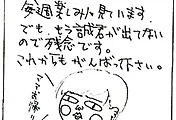 毎週楽しみに見ています。
でも、もう誠君が出てない
ので残念です。
これからもがんばって下さい。